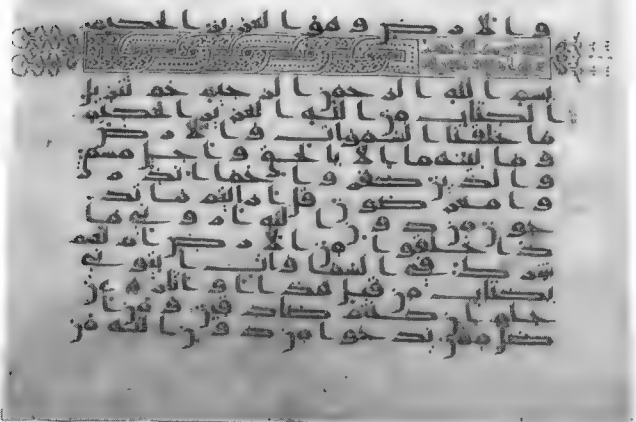 والارض وهو العزيز الحكيم
بسم الله الرحمن الرحيم حم تنزيل
الكتاب من الله العزيز الحكيم
ما خلقنا السموات والارض
وما بينهما الا بالحق واجل مسمى
والذين كفروا عما انذر
وا معرضون قل ارايتم ما تد
عون من دون الله ارونى ما
ذا خلقوا من الارض ام لهم
شرك فى السموات ايتونى
بكتاب من قبل هذا او اثارة من
علم ان كنتم صادقين ومن ا
ضل ممن يدعوا من دون الله من